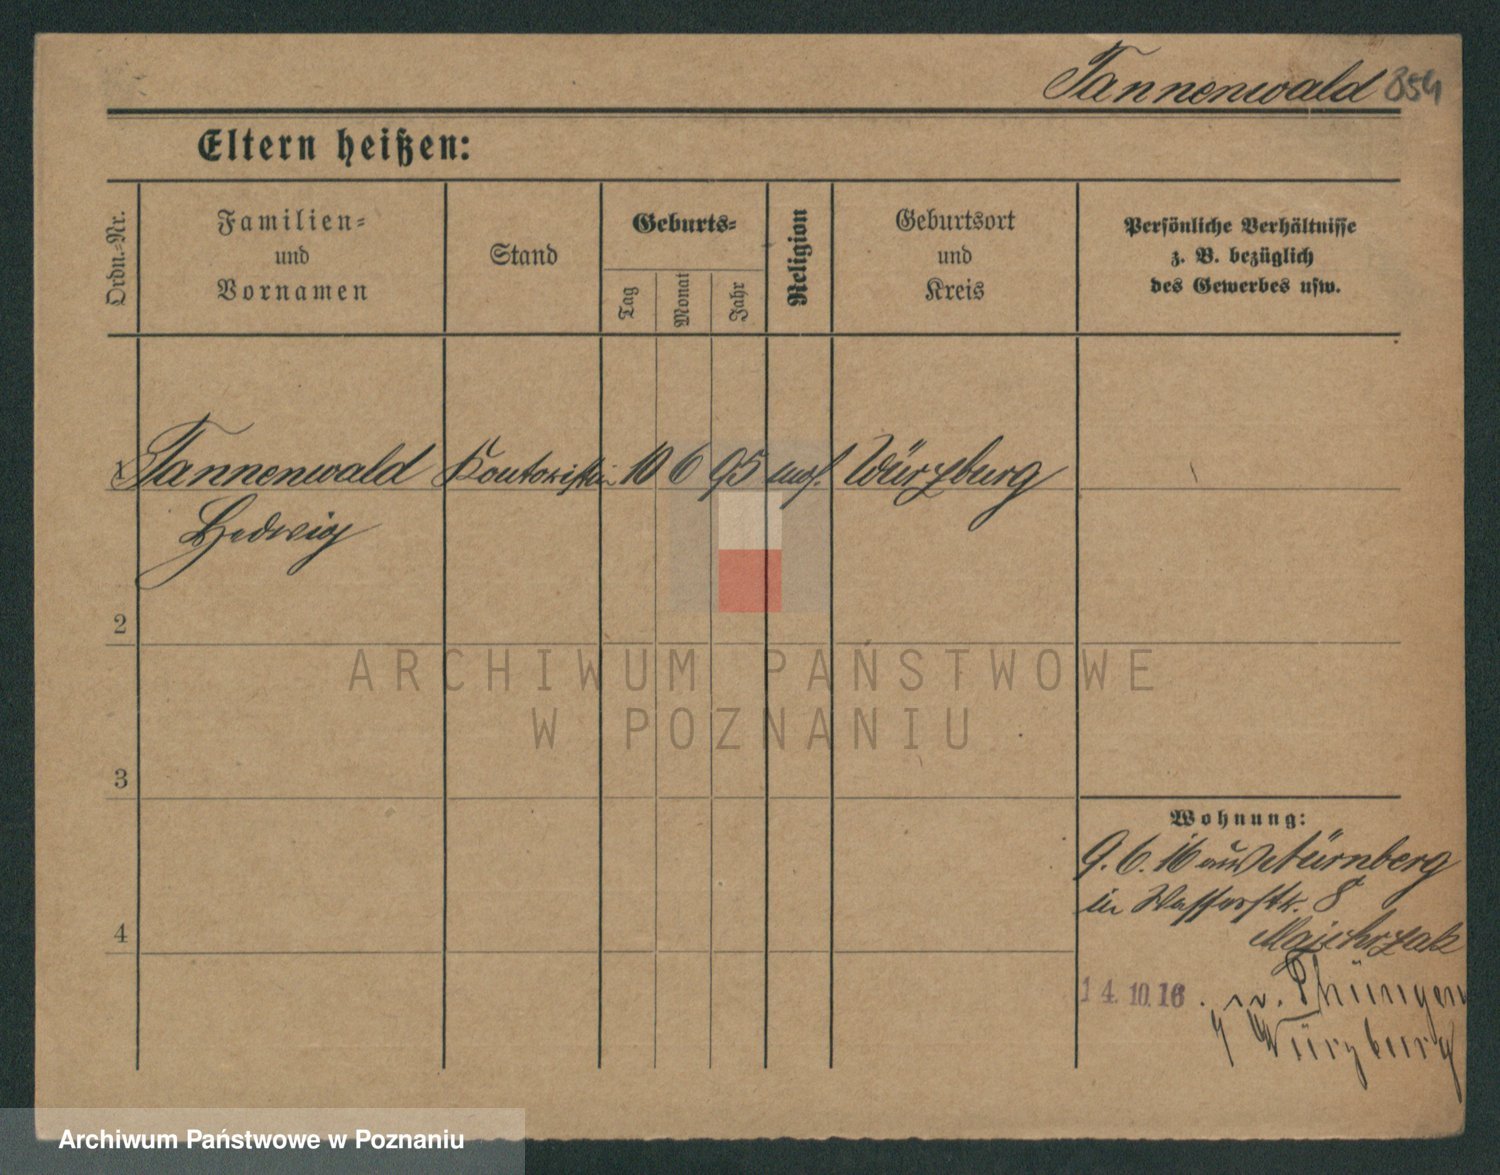 Tannenwald 854
Eltern heißen:
Ordn.-Nr.
Familien-
und
Vornamen
Stand
Geburts-
Tag
Monat
Jahr
Religion
Geburtsort
und
Kreis
Persönliche Verhältnisse
z. B. bezüglich
des Gewerbes usw.
1 Tannenwald Kontoristin 10 6 95 Würzburg
Hedwig
2
3
4
Wohnung:
9.6.16 aus Nürnberg
in Wasserstr. 8
Majchrzak
14.10.16 n. Thüngen
Würzburg
ARCHIWUM PAŃSTWOWE
W POZNANIU
Archiwum Państwowe w Poznaniu